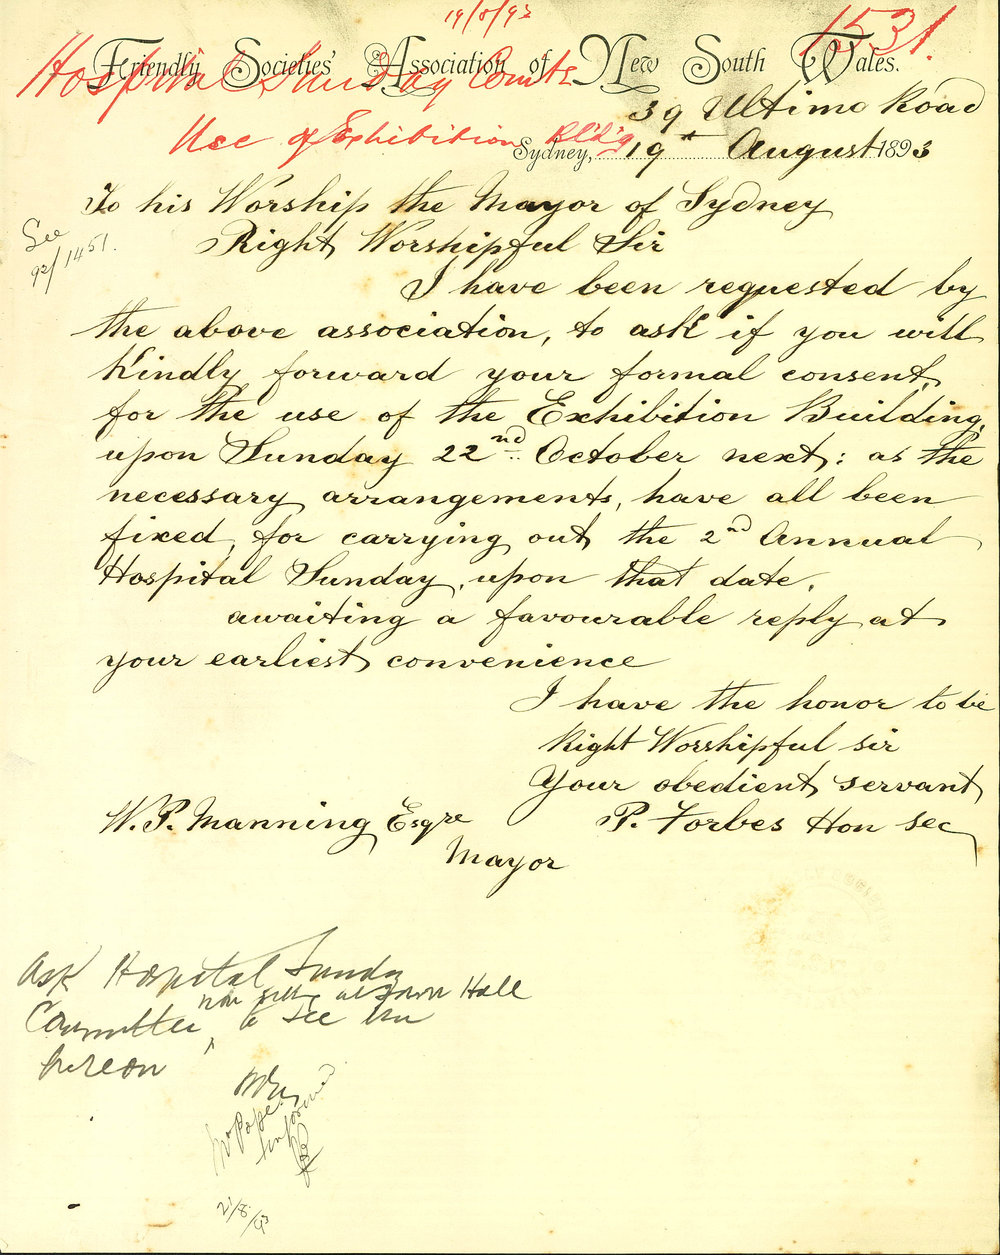 19/8/93
1531.
Friendly Societies' Association of New South Wales.
Hospital Sunday Comte
Use of Exhibition Bld'g
39 Ultimo Road
Sydney, 19th August 1893
To his Worship the Mayor of Sydney
See
92/1451.
Right Worshipful Sir
I have been requested by
the above association, to ask if you will
Kindly forward your formal consent,
for the use of the Exhibition Building,
upon Sunday 22nd October next: as the
necessary arrangements, have all been
fixed, for carrying out the 2nd Annual
Hospital Sunday, upon that date.
awaiting a favourable reply at
your earliest convenience
I have the honor to be
Right Worshipful sir
Your obedient servant
W. P. Manning Esqre
P. Forbes Hon Sec
Mayor
Ask Hospital Sunday
now sittg at Town Hall
Committee to see me
hereon
Mr Pope
Informed
21/8/93